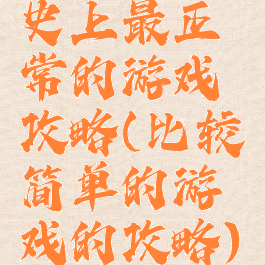 史上最正
常的游戏
攻略(比较
简单的游
戏的攻略)